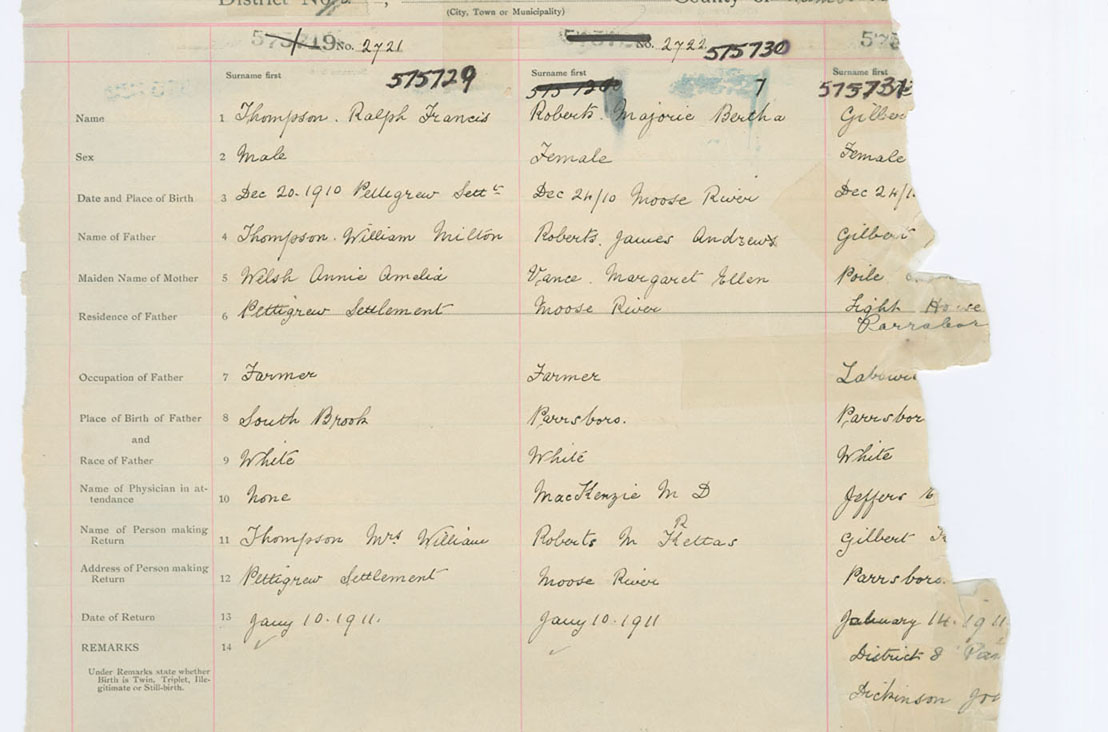 District No. , County of
(City, Town or Municipality)
575719 No. 2721 No. 2722 575730 575
Surname first 575729 Surname first 7 Surname first 575731
Name 1 Thompson. Ralph Francis Roberts. Majorie Bertha Gilber
Sex 2 Male Female Female
Date and Place of Birth 3 Dec 20. 1910 Pettigrew Settt Dec 24/10 Moose River Dec 24/1
Name of Father 4 Thompson. William Milton Roberts. James Andrew Gilbert
Maiden Name of Mother 5 Welsh Annie Amelia Vance. Margaret Ellen Poile
Residence of Father 6 Pettigrew Settlement Moose River Light House
Parrsboro
Occupation of Father 7 Farmer Farmer Laboure
Place of Birth of Father 8 South Brook Parrsboro. Parrsbor
and
Race of Father 9 White White White
Name of Physician in at-
tendance 10 None MacKenzie M D Jeffers
Name of Person making
Return 11 Thompson Mrs William Roberts M Gilbert
Address of Person making
Return 12 Pettigrew Settlement Moose River Parrsboro.
Date of Return 13 Jany 10. 1911. Jany 10. 1911 January 14. 1911
REMARKS 14 District 8 Par
Under Remarks state whether
Birth is Twin, Triplet, Ille-
gitimate or Still-birth.
Dickinson